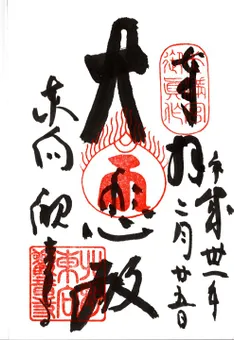 奉拝
平成卅一年
二月廿五日
大悲殿
東向観音寺